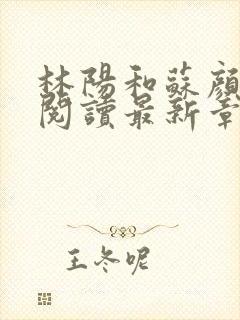 林陽和蘇顏
閱讀最新章
王冬呢